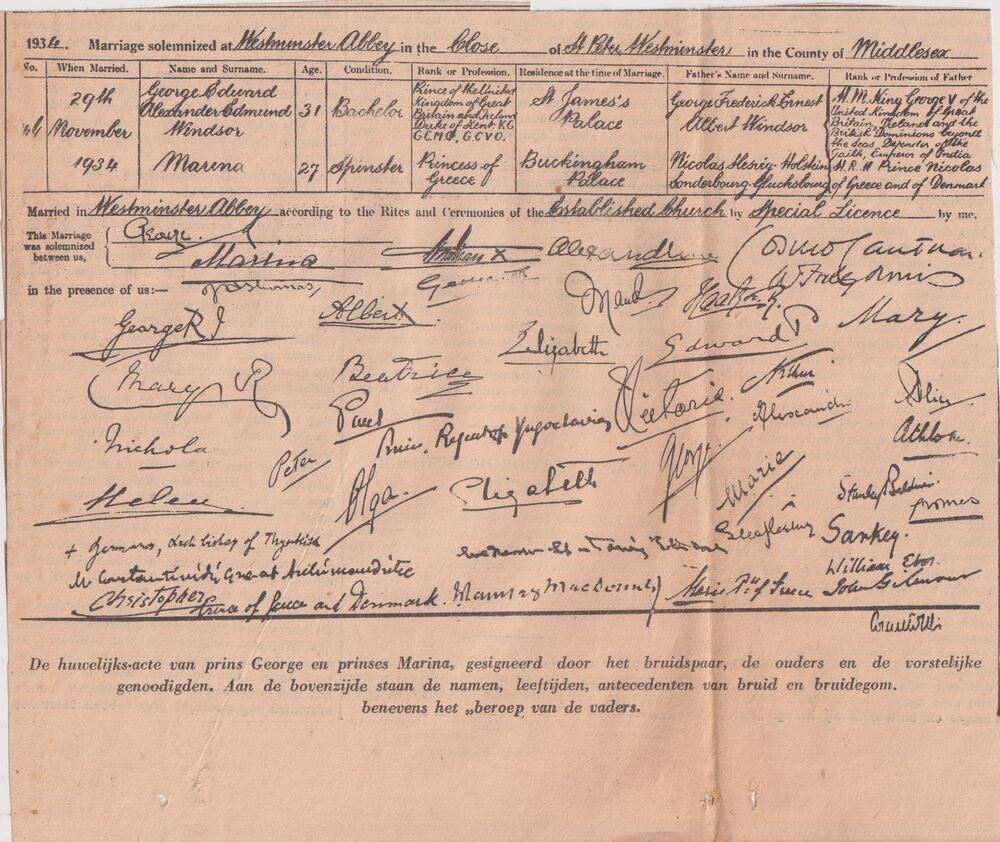 1934. Marriage solemnized at Westminster Abbey in the Close of St Peter, Westminster in the County of Middlesex
No. When Married. Name and Surname. Age. Condition. Rank or Profession. Residence at the time of Marriage. Father's Name and Surname. Rank or Profession of Father
29th November 1934
George Edward Alexander Edmund Windsor
31
Bachelor
Prince of the United Kingdom of Great Britain and Ireland Duke of Kent. K.G G.C.M.G. G.C.V.O.
St James's Palace
George Frederick Ernest Albert Windsor
H.M. King George V of the United Kingdom of Great Britain, Ireland and the British Dominions beyond the Seas, Defender of the Faith, Emperor of India
Marina
27
Spinster
Princess of Greece
Buckingham Palace
Nicolas Slesvig-Holstein Sonderbourg-Glucksbourg
H.R.H Prince Nicolas of Greece and of Denmark
Married in Westminster Abbey according to the Rites and Ceremonies of the Established Church by Special Licence by me,
This Marriage was solemnized between us,
George.
Marina
in the presence of us:—
George R I
Albert
Maud
Haakon R.
Mary R
Beatrice
Elizabeth
Edward P
Mary.
Nichola
Paul
Prince, Regent of Yugoslavia
Victoria.
Arthur
Alice
Athlone.
Helen
Peter
Olga.
Elizabeth
George
Maria
Stanley Baldwin
+ Germanos, Archbishop of Thyateira
Sankey.
Great Archimandrite
William Ebor.
Christopher
Prince of Greece and Denmark.
Ramsay MacDonald
Marie Pss of Greece
John Gilmour
De huwelijks-acte van prins George en prinses Marina, gesigneerd door het bruidspaar, de ouders en de vorstelijke
genoodigden. Aan de bovenzijde staan de namen, leeftijden, antecedenten van bruid en bruidegom.
benevens het „beroep van de vaders.